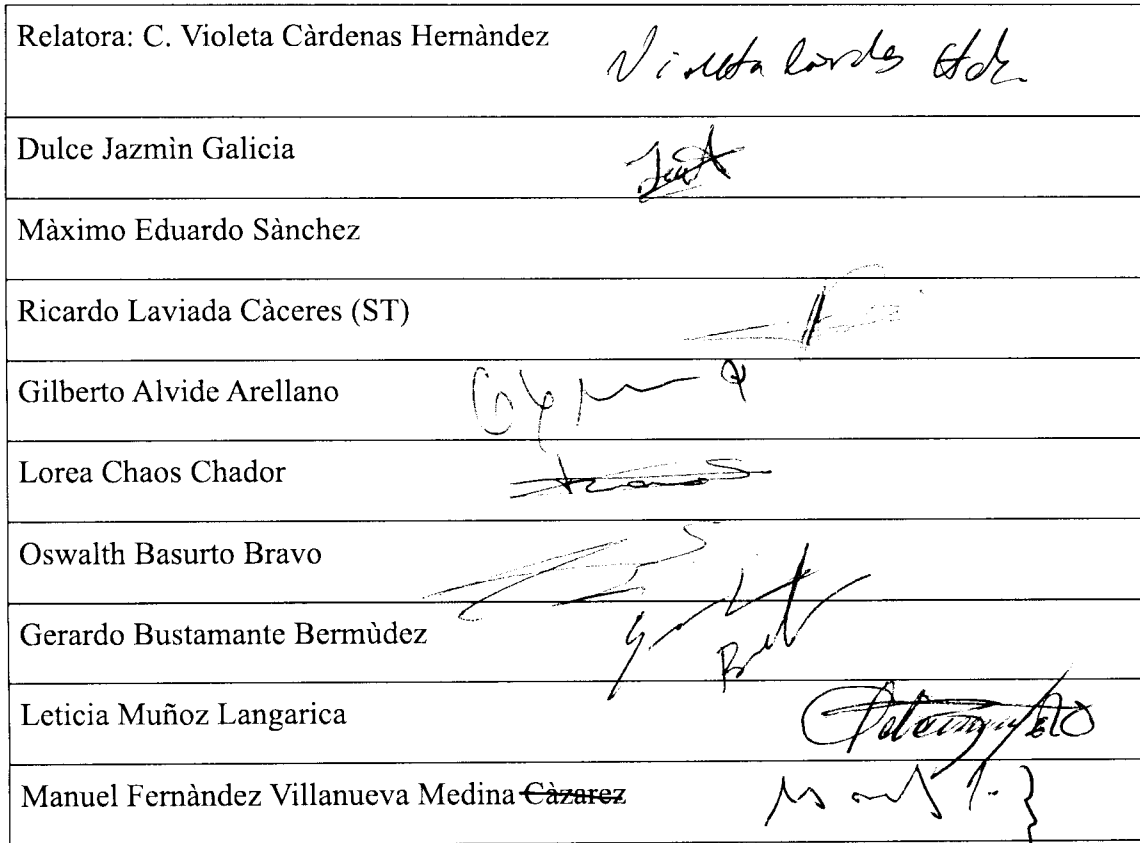 Relatora: C. Violeta Càrdenas Hernàndez
Dulce Jazmìn Galicia
Màximo Eduardo Sànchez
Ricardo Laviada Càceres (ST)
Gilberto Alvide Arellano
Lorea Chaos Chador
Oswalth Basurto Bravo
Gerardo Bustamante Bermùdez
Leticia Muñoz Langarica
Manuel Fernàndez Villanueva Medina Càzarez